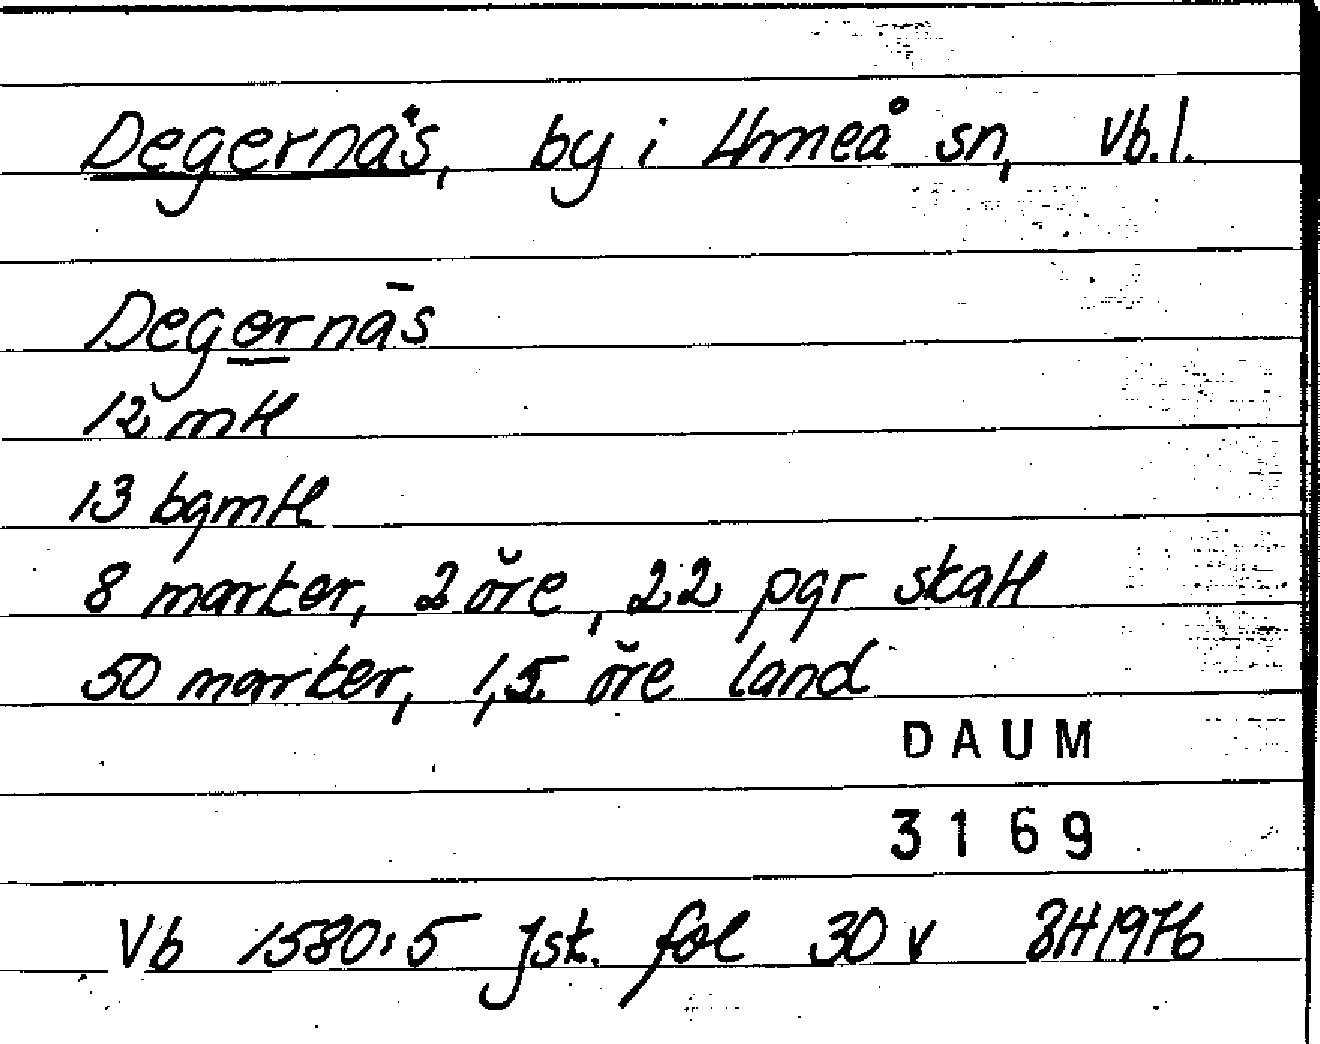 Degernäs, by i Umeå sn, Vb.l.
Degernäs
12 mtl
13 bgmtl
8 marker, 2 öre, 22 pgr skatt
50 marker, 1,5 öre land
DAUM
3169
Vb 1580:5 Jsk. fol 30 v 1976